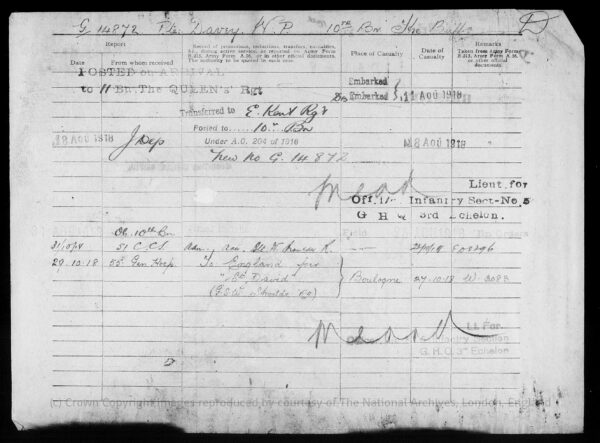 G 14872 Pte. Davey, W P 10th Bn The Buffs D
Report
Date
From whom received
Record of promotions, reductions, transfers, casualties, &c., during active service, as reported on Army Form B.213, Army Form A.36, or in other official documents. The authority to be quoted in each case.
Place of Casualty
Date of Casualty
Remarks
Taken from Army Form B.213, Army Form A.36, or other official documents.
POSTED on ARRIVAL
to 11 Bn. The QUEEN's Rgt
Embarked
Embarked 11 AOU 1918
Transferred to E. Kent Rgt
Posted to 10th Bn
Under A.O. 204 of 1916
AOU 1918
J Dep
18 AOU 1918
New No G. 14872
Lieut. for
Off. i/c Infantry Sect-No. 5
G H Q 3rd Echelon.
10th Bn
51 C.C.S.
29.10.18 55 Gen Hosp To England per
"St David"
Boulogne 27.10.18 W 3083
Lt. For
G.H.Q. 3rd Echelon
(c) Crown Copyright Images reproduced by courtesy of The National Archives, London, England